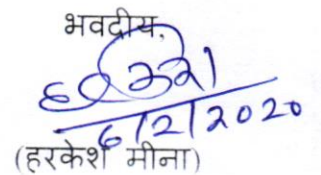 भवदीय,
6/2/2020
(हरकेश मीना)